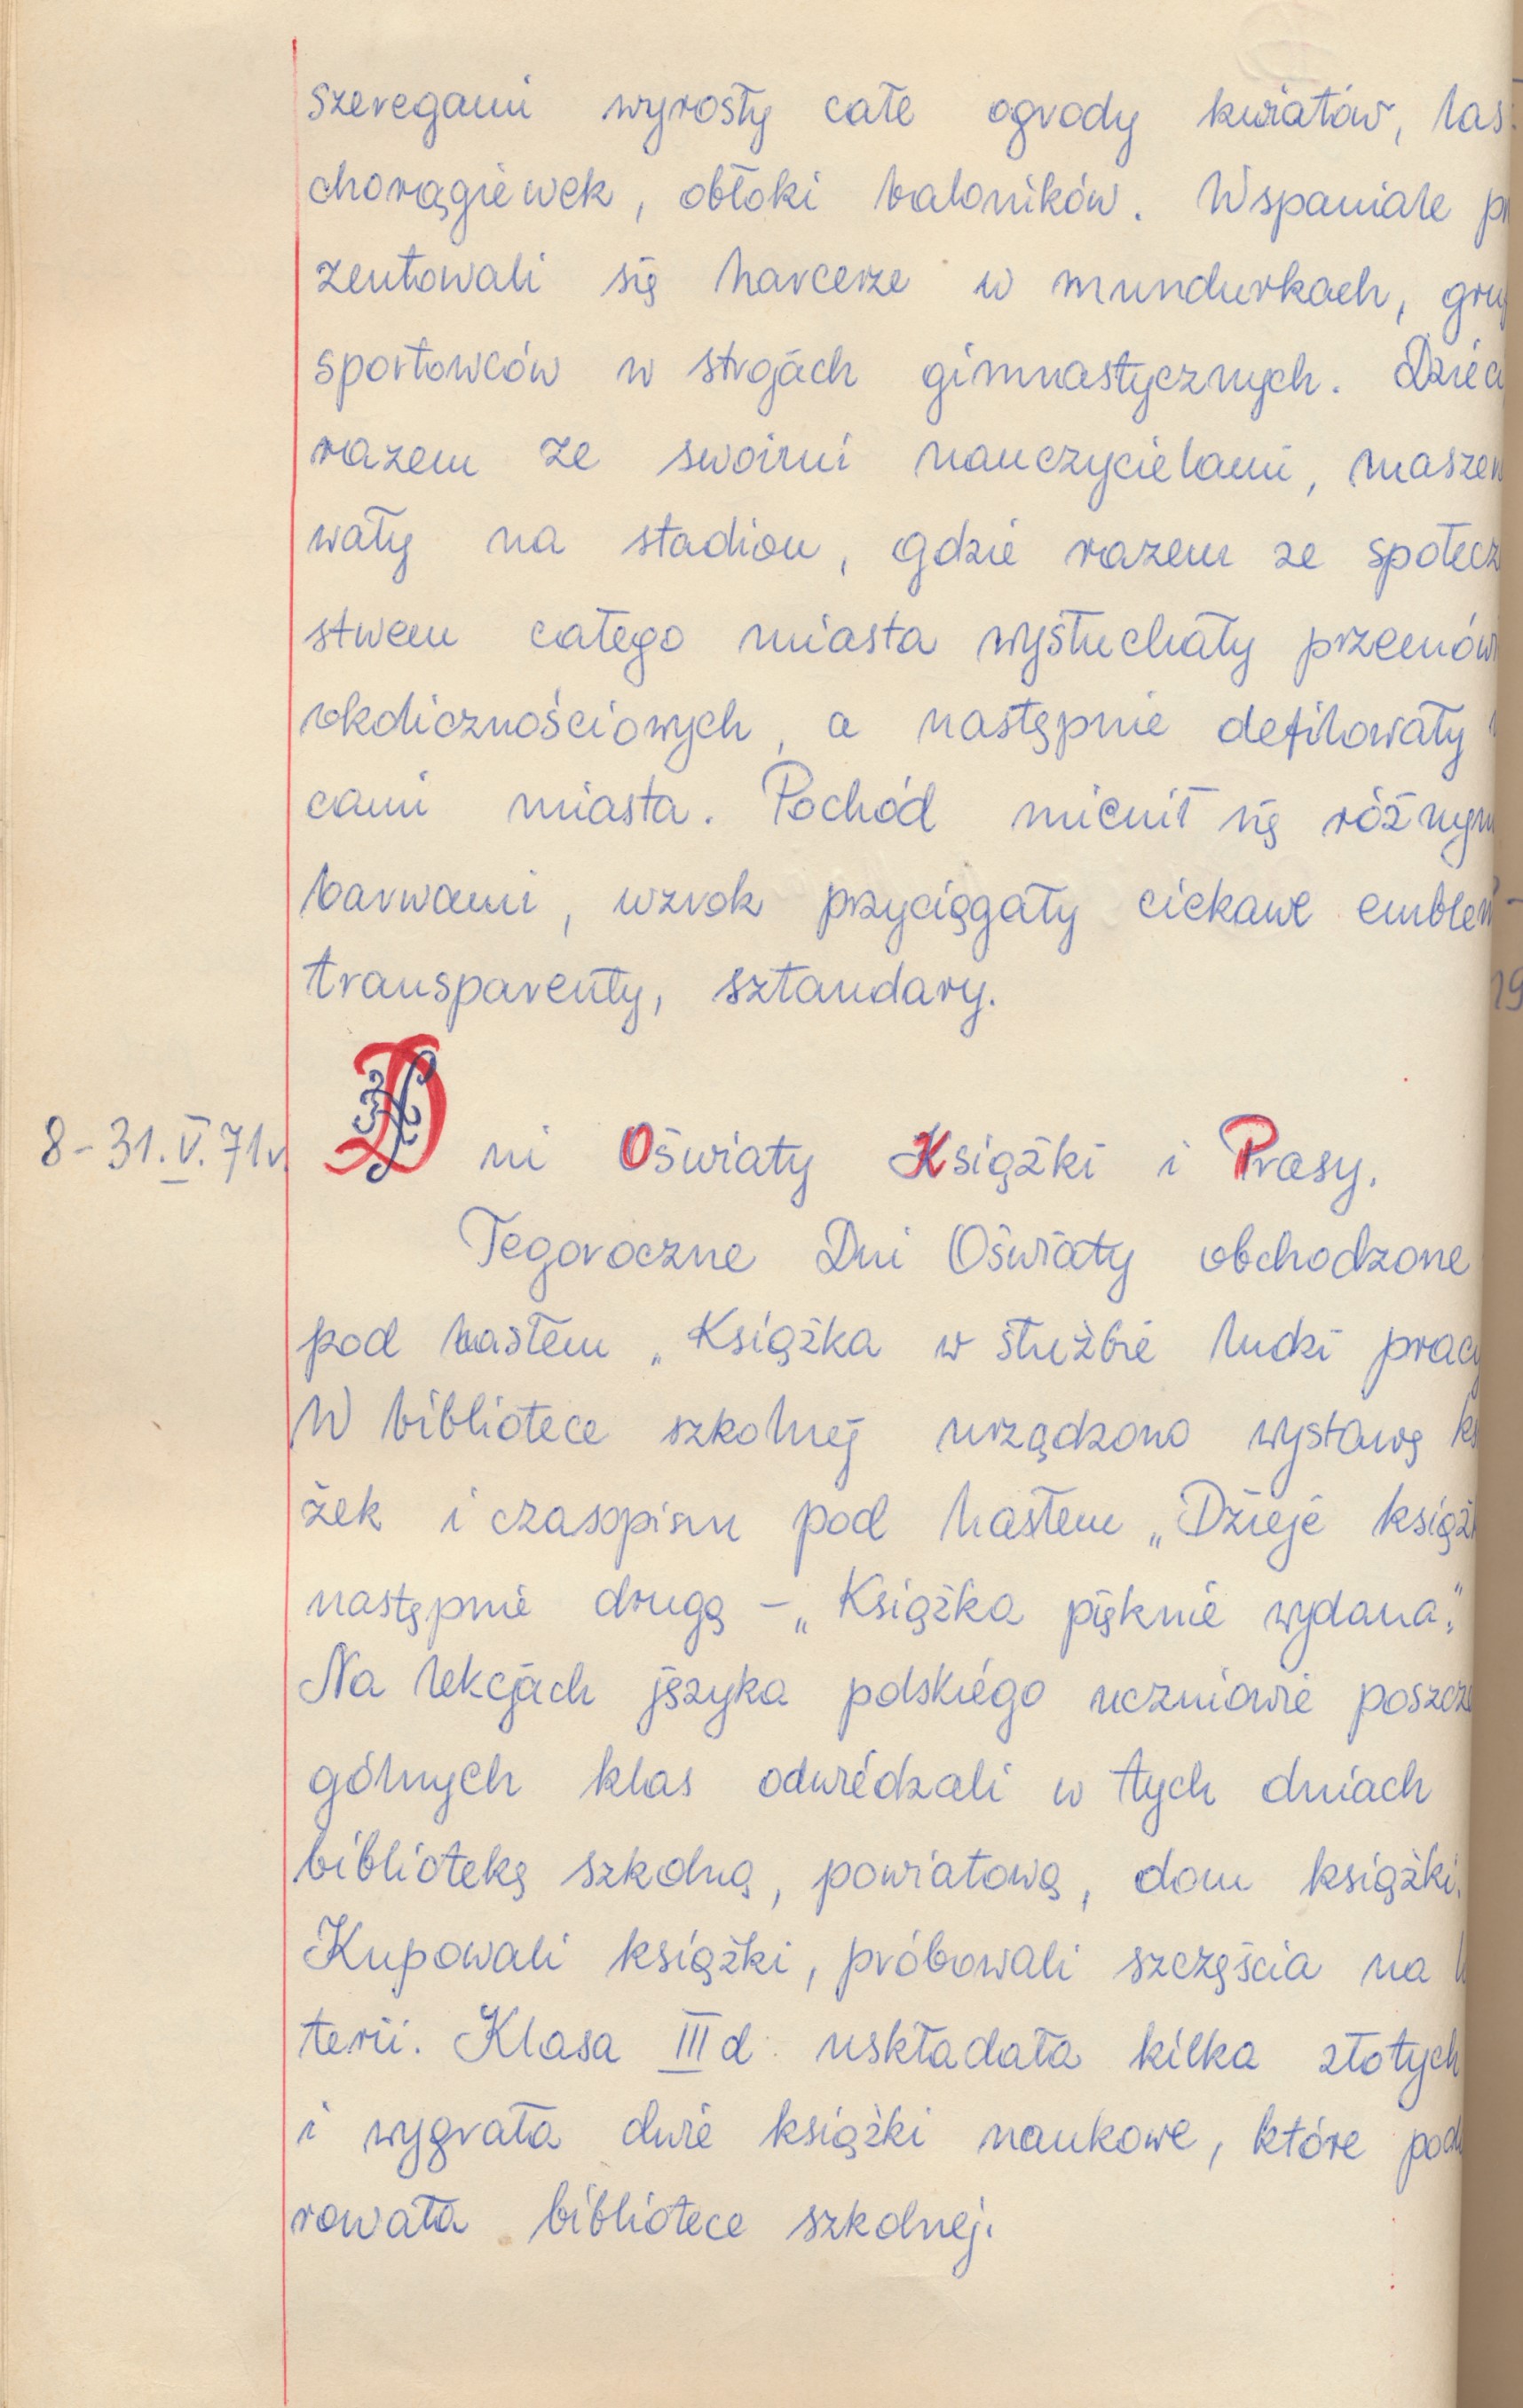 szeregami wyrosły całe ogrody kwiatów, las
chorągiewek, obłoki baloników. Wspaniale p
zentowali się harcerze w mundurkach, gru
sportowców w strojach gimnastycznych. Dzieci
razem ze swoimi nauczycielami, maszer
wały na stadion, gdzie razem ze społecz
stwem całego miasta wysłuchały przemów
okolicznościowych, a następnie defilowały
cami miasta. Pochód mienił się różnym
barwami, wzrok przyciągały ciekawe emblem
transparenty, sztandary.
8-31.V.71r Dni Oświaty Książki i Prasy.
Tegoroczne Dni Oświaty obchodzone
pod hasłem „Książka w służbie ludzi pracy
W bibliotece szkolnej urządzono wystawę ks
żek i czasopism pod hasłem „Dzieje książ
następnie drugą - „Książka pięknie wydana."
Na lekcjach języka polskiego uczniowie poszcze
gólnych klas odwiedzali w tych dniach
bibliotekę szkolną, powiatową, dom książki.
Kupowali książki, próbowali szczęścia na l
terii. Klasa III d uskładała kilka złotych
i wygrała dwie książki naukowe, które pod
rowała bibliotece szkolnej.